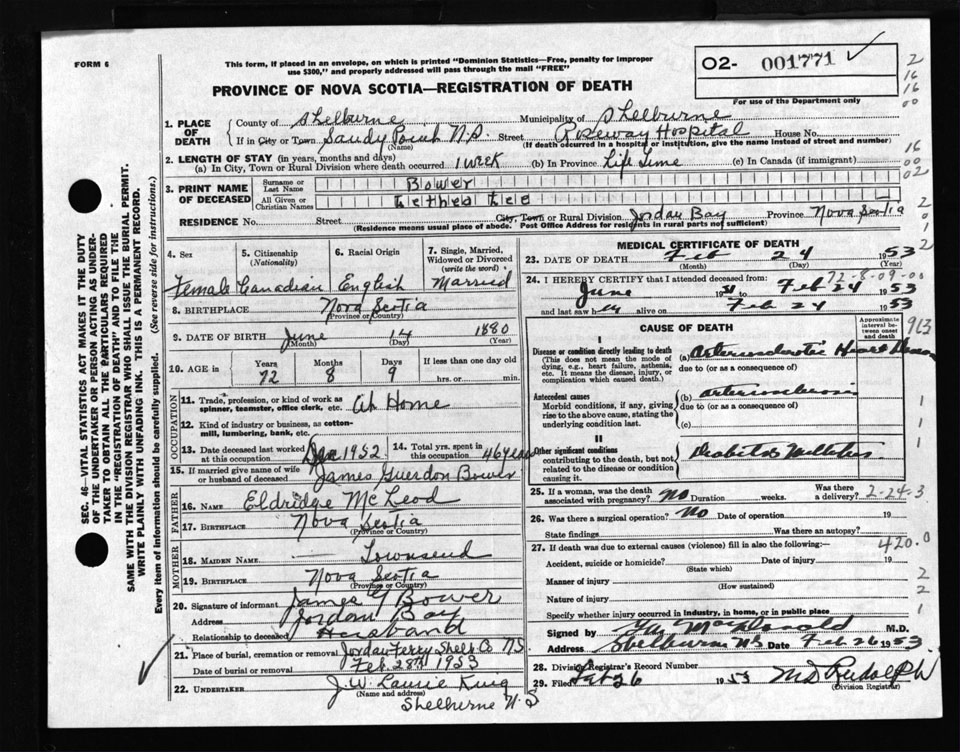 FORM 6
This form, if placed in an envelope, on which is printed "Dominion Statistics—Free, penalty for improper
use $300," and properly addressed will pass through the mail "FREE"
O2- 001771
For use of the Department only
PROVINCE OF NOVA SCOTIA—REGISTRATION OF DEATH
2
16
16
00
16
00
02
2
0
1
2
1. PLACE OF DEATH
County of Shelburne Municipality of Shelburne
If in City or Town Sandy Point N.S. Street Roseway Hospital House No.
(Name) (If death occurred in a hospital or institution, give the name instead of street and number)
2. LENGTH OF STAY (in years, months and days)
(a) In City, Town or Rural Division where death occurred 1 week (b) In Province Life Time (c) In Canada (if immigrant)
3. PRINT NAME OF DECEASED
Surname or Last Name Bower
All Given or Christian Names Lethea Lee
City, Town or Rural Division Jordan Bay Province Nova Scotia
RESIDENCE No. Street
(Residence means usual place of abode. Post Office Address for residents in rural parts not sufficient)
4. Sex Female
5. Citizenship (Nationality) Canadian
6. Racial Origin English
7. Single, Married, Widowed or Divorced (write the word) Married
8. BIRTHPLACE Nova Scotia
(Province or Country)
9. DATE OF BIRTH June 14 1880
(Month) (Day) (Year)
10. AGE in Years 72 Months 8 Days 9 If less than one day old hrs. or min.
OCCUPATION
11. Trade, profession, or kind of work as spinner, teamster, office clerk, etc. At Home
12. Kind of industry or business, as cotton-mill, lumbering, bank, etc.
13. Date deceased last worked at this occupation 1952
14. Total yrs. spent in this occupation 46 years
15. If married give name of wife or husband of deceased James Guerdon Bower
FATHER
16. Name Eldridge McLeod
17. Birthplace Nova Scotia
(Province or Country)
MOTHER
18. Maiden Name — Townsend
19. Birthplace Nova Scotia
(Province or Country)
20. Signature of informant James G Bower
Address Jordan Bay
Relationship to deceased Husband
21. Place of burial, cremation or removal Jordan Ferry Shelb Co N.S
Date of burial or removal Feb 28th 1953
22. UNDERTAKER J.W. Laurie King
(Name and address)
Shelburne N.S
MEDICAL CERTIFICATE OF DEATH
23. DATE OF DEATH Feb 24 1953
(Month) (Day) (Year)
72-8-09-00
24. I HEREBY CERTIFY that I attended deceased from:
June 1951 to Feb 24 1953
and last saw her alive on Feb 24 1953
CAUSE OF DEATH
Approximate interval between onset and death
I
Disease or condition directly leading to death
(This does not mean the mode of dying, e.g., heart failure, asthenia, etc. It means the disease, injury, or complication which caused death.)
(a) Arteriosclerotic Heart Disease
due to (or as a consequence of)
Antecedent causes
Morbid conditions, if any, giving rise to the above cause, stating the underlying condition last.
(b) arteriosclerosis
due to (or as a consequence of)
(c)
II
Other significant conditions
contributing to the death, but not related to the disease or condition causing it.
Diabetes Mellitus
1
1
1
25. If a woman, was the death associated with pregnancy? No Duration weeks. Was there a delivery?
2-24-3
26. Was there a surgical operation? No Date of operation 19
State findings Was there an autopsy?
27. If death was due to external causes (violence) fill in also the following:—
420.0
Accident, suicide or homicide? Date of injury 19
(State which)
Manner of injury
(How sustained)
Nature of injury
Specify whether injury occurred in industry, in home, or in public place
2
2
1
Signed by MacDonald M.D.
Address Shelburne N.S Date Feb 26 1953
28. Division Registrar's Record Number
29. Filed Feb 26 1953 M D Rudolph
(Division Registrar)
SEC. 46—VITAL STATISTICS ACT MAKES IT THE DUTY
OF THE UNDERTAKER OR PERSON ACTING AS UNDER-
TAKER TO OBTAIN ALL THE PARTICULARS REQUIRED
IN THE "REGISTRATION OF DEATH" AND TO FILE THE
SAME WITH THE DIVISION REGISTRAR WHO SHALL ISSUE THE BURIAL PERMIT.
WRITE PLAINLY WITH UNFADING INK. THIS IS A PERMANENT RECORD.
Every item of information should be carefully supplied. (See reverse side for instructions.)